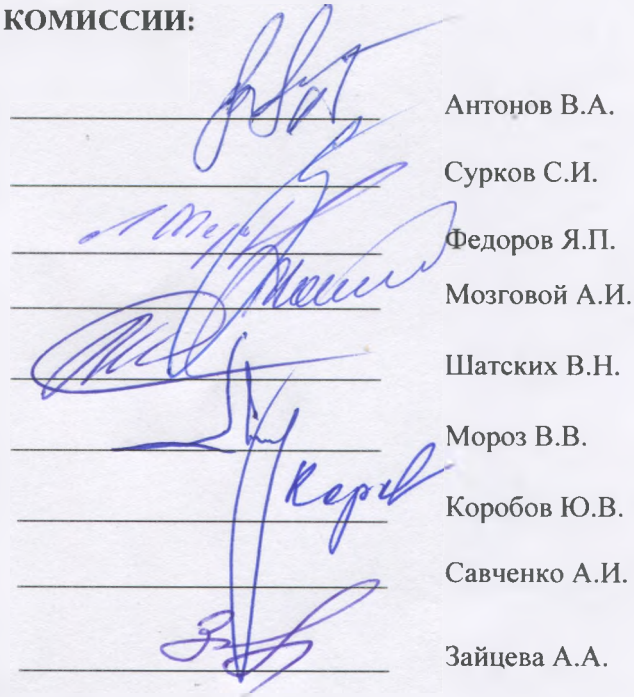 КОМИССИИ:
Антонов В.А.
Сурков С.И.
Федоров Я.П.
Мозговой А.И.
Шатских В.Н.
Мороз В.В.
Коробов Ю.В.
Савченко А.И.
Зайцева А.А.